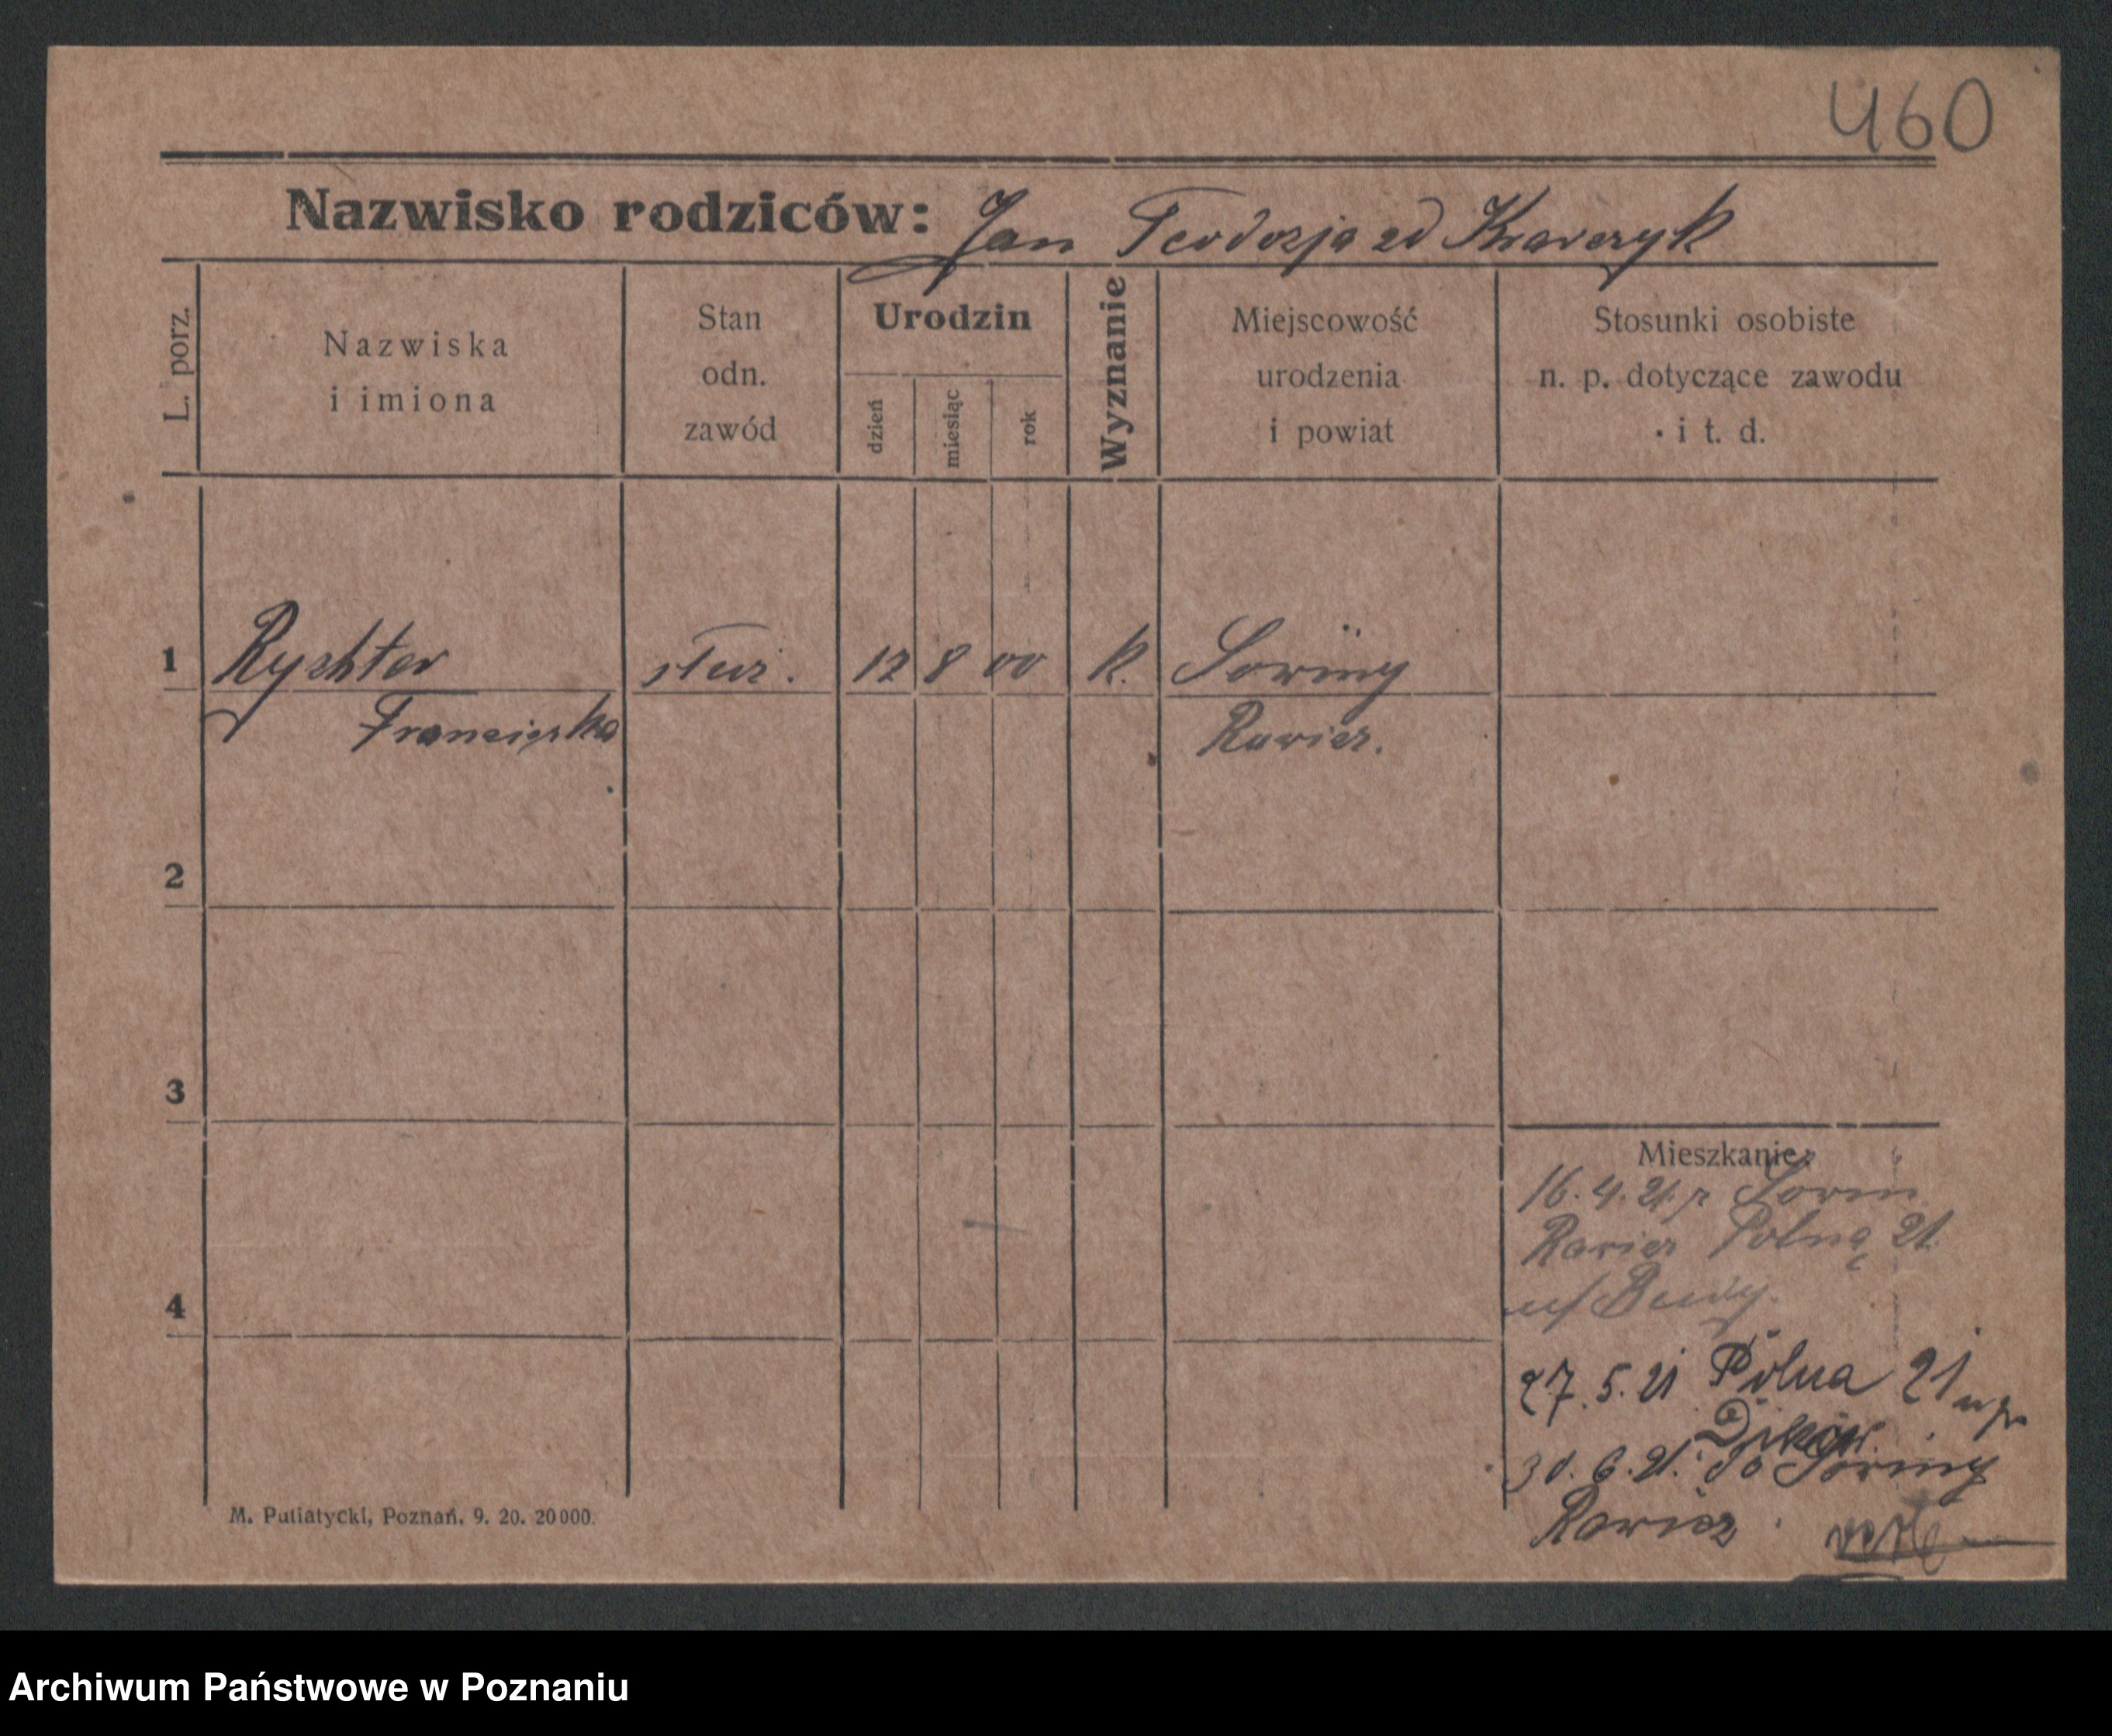 460
Nazwisko rodziców: Jan Teodozja zd Krawczyk
L. porz.
Nazwiska
i imiona
Stan
odn.
zawód
Urodzin
dzień
miesiąc
rok
Wyznanie
Miejscowość
urodzenia
i powiat
Stosunki osobiste
n. p. dotyczące zawodu
i t. d.
1 Rychter służ. 12 8 00 k. Sowiny
Franciszka Rawicz.
2
3
4
Mieszkanie:
16.4.21 z Sowin
Rawicz Polna 21
27.5.21 Polna 21
30.6.21. do Sowiny
Rawicz
M. Putiatycki, Poznań, 9. 20. 20000.
Archiwum Państwowe w Poznaniu